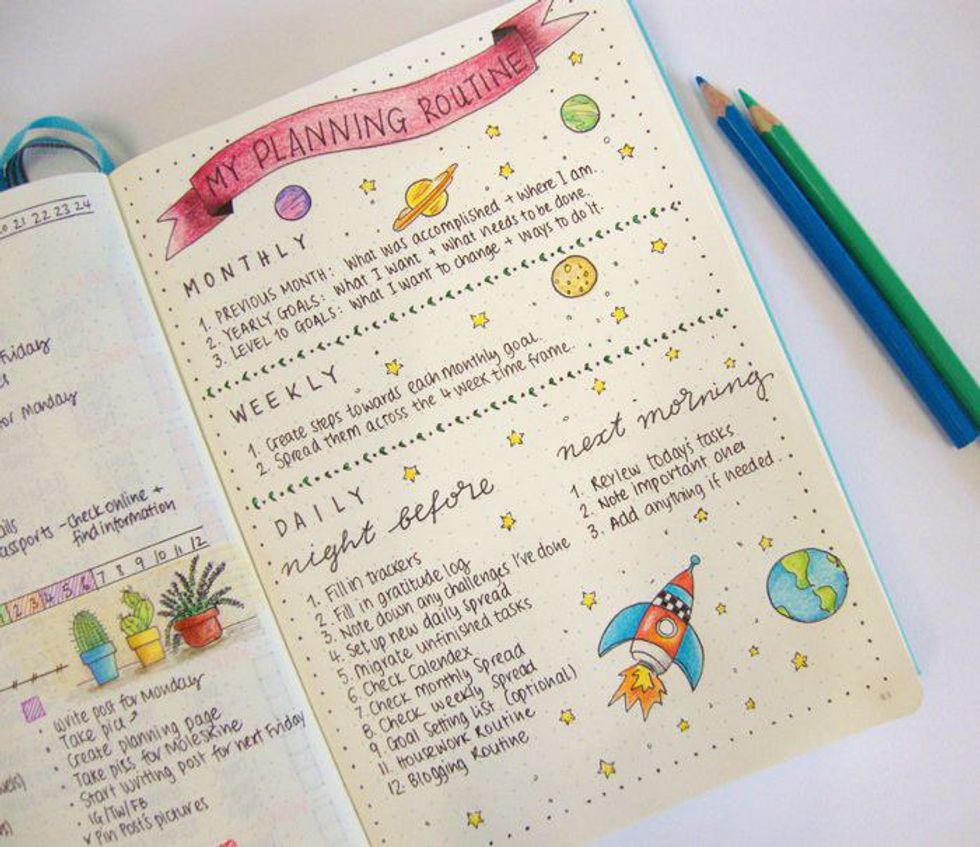 20 21 22 23 24
Friday
for Monday
- check online +
find information
2 3 4 5 6 7 8 9 10 11 12
write post for Monday
Take pics
Create planning page
Take pics for Moleskine
Start writing post for next Friday
IG/TW/FB
Pin Post's pictures
MY PLANNING ROUTINE
MONTHLY
1. PREVIOUS MONTH: What was accomplished + where I am.
2. YEARLY GOALS: What I want + what needs to be done.
3. LEVEL 10 GOALS: What I want to change + ways to do it.
WEEKLY
1. Create steps towards each monthly goal.
2. Spread them across the 4 week time frame.
DAILY
night before
1. Fill in trackers
2. Fill in gratitude log
3. Note down any challenges I've done
4. Set up new daily spread
5. Migrate unfinished tasks
6. Check Calendex
7. Check monthly spread
8. Check weekly spread
9. Goal Setting list (optional)
11. Housework Routine
12. Blogging Routine
next morning
1. Review today's tasks
2. Note important ones
3. Add anything if needed..